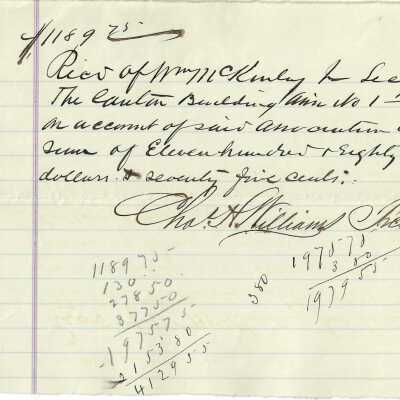 $1189 75
Recd of Wm McKinley Jr Sec
The Canton Building Assn No 1
on account of said Association
sum of Eleven hundred & Eighty
dollars & seventy five cents.
Chas. A. Williams
1189 75
130
278 50
377 50
1975 75
2153 80
4129 55
380
1975 75
3 80
1979 55